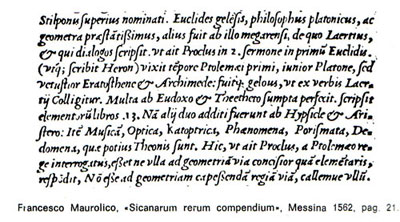 Stilponus superius nominati. Euclides gelēsis, philosophus platonicus, ac
geometra præstātissimus, alius fuit ab illo megarensi, de quo Laertius,
& qui dialogos scripsit. vt ait Proclus in 2. sermone in primū Euclidis.
(vtq; scribit Heron) vixit tēpore Ptolemæi primi, iunior Platone, sed
vetustior Eratosthene & Archimede: fuitq; gelous, vt ex verbis Laer-
tij Colligitur. Multa ab Eudoxo & Theetheto sumpta perfecit. scripsit
element.rū libros .13. Nā alij duo additi fuerunt ab Hypsicle & Ari-
stero: Itē Musicā, Optica, Katoptrica, Phænomena, Porismata, De-
domena, quæ potius Theonis sunt. Hic, vt ait Proclus, a Ptolemæo re-
ge interrogatus, esset ne vlla ad geometriā via concisior quā elemētaris,
respōdit, Nō esse ad geometriam capessendā regiā viā, callemue vllū.
Francesco Maurolico, «Sicanarum rerum compendium», Messina 1562, pag. 21.